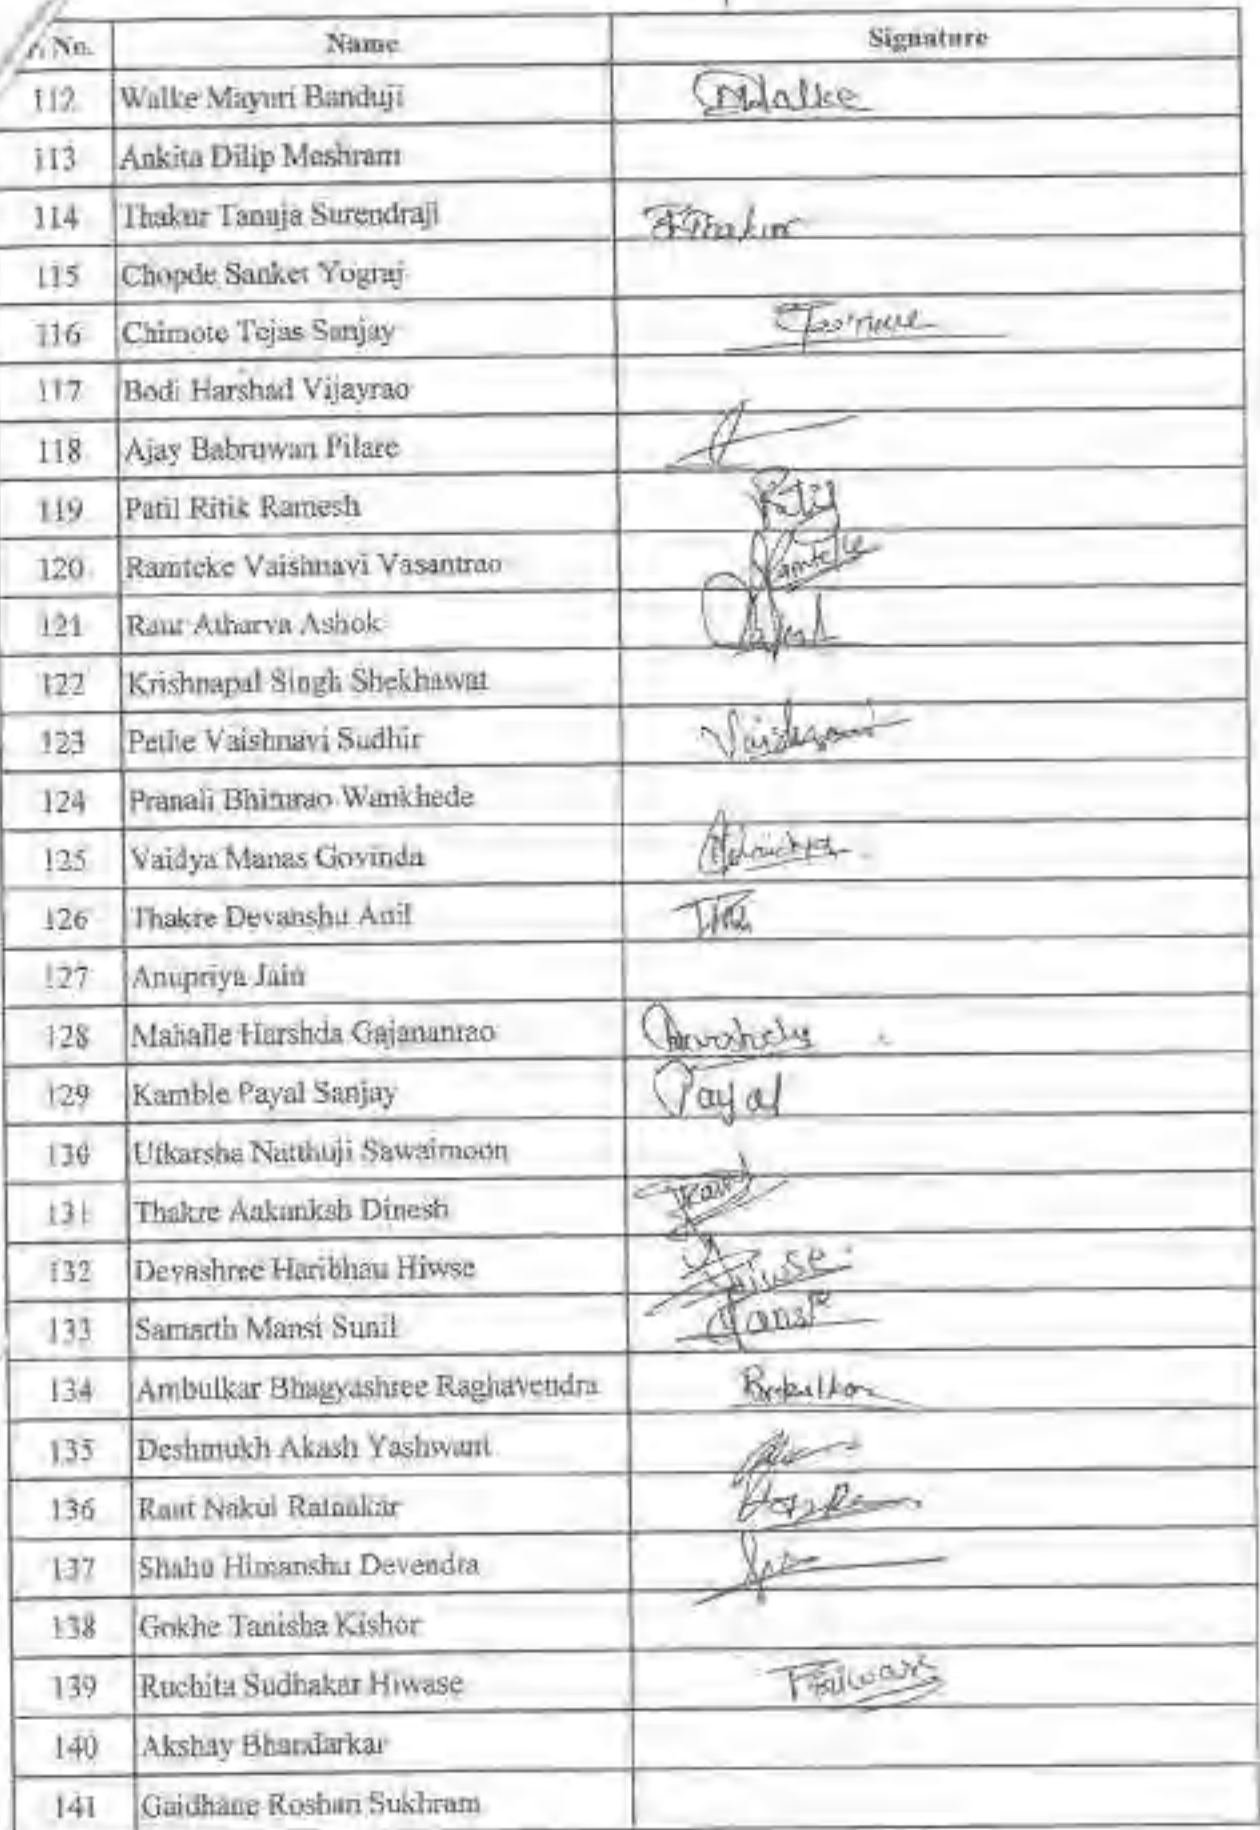 No. Name Signature
112 Walke Mayuri Banduji Walke
113 Ankita Dilip Meshram
114 Thakur Tanuja Surendraji Thakur
115 Chopde Sanket Yograj
116 Chimote Tejas Sanjay
117 Bodi Harshad Vijayrao
118 Ajay Babruwan Pilare
119 Patil Ritik Ramesh Patil
120 Ramteke Vaishnavi Vasantrao Ramteke
121 Raut Atharva Ashok
122 Krishnapal Singh Shekhawat
123 Pethe Vaishnavi Sudhir Vaishnavi
124 Pranali Bhimrao Wankhede
125 Vaidya Manas Govinda
126 Thakre Devanshu Anil
127 Anupriya Jain
128 Mahalle Harshda Gajananrao
129 Kamble Payal Sanjay Payal
130 Utkarsha Natthuji Sawaimoon
131 Thakre Aakanksh Dinesh
132 Devashree Haribhau Hiwse Hiwse
133 Samarth Mansi Sunil Mansi
134 Ambulkar Bhagyashree Raghavendra
135 Deshmukh Akash Yashwant
136 Raut Nakul Ratnakar
137 Shahu Himanshu Devendra
138 Gokhe Tanisha Kishor
139 Ruchita Sudhakar Hiwase
140 Akshay Bhandarkar
141 Gaidhane Roshan Sukhram